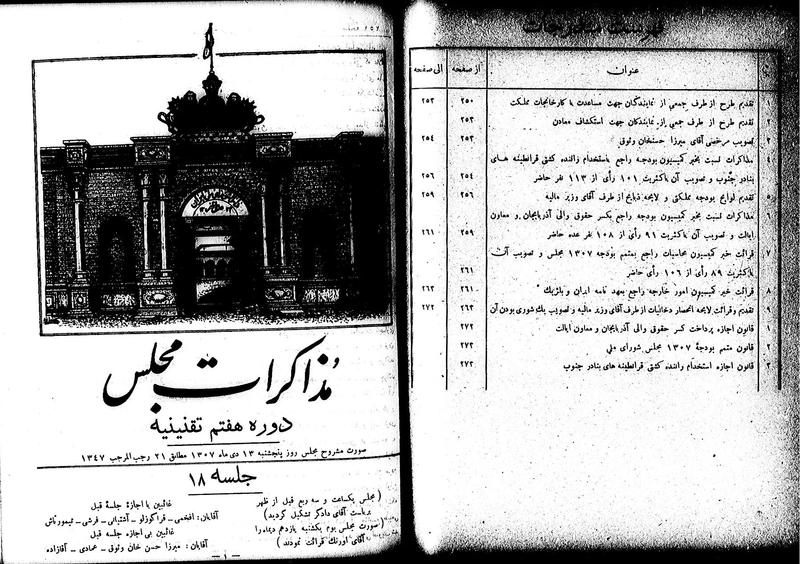 فهرست مندرجات
عنوان از صفحه الی صفحه
۱ تقدیم طرح از طرف جمعی از نمایندگان جهت مساعدت با کارخانجات مملکت ۲۵۰ ۲۵۳
۲ تقدیم طرح از طرف جمعی از نمایندگان جهت استکشاف معادن ۲۵۳
۳ تصویب مرخصی آقای میرزا حسنخان وثوق ۲۵۳ ۲۵۴
۴ مذاکرات نسبت بخبر کمیسیون بودجه راجع باستخدام راننده کشتی قرانطینه های
بنادر جنوب و تصویب آن باکثریت ۱۰۱ رأی از ۱۱۳ نفر حاضر ۲۵۴ ۲۵۶
۵ تقدیم لوایح بودجه مملکتی و لایحه ذبایح از طرف آقای وزیر مالیه ۲۵۶ ۲۵۹
۶ مذاکرات نسبت بخبر کمیسیون بودجه راجع بکسر حقوق والی آذربایجان و معاون
ایالت و تصویب آن باکثریت ۹۱ رأی از ۱۰۸ نفر عده حاضر ۲۵۹ ۲۶۱
۷ قرائت خبر کمیسیون محاسبات راجع بمتمم بودجه ۱۳۰۷ مجلس و تصویب آن
باکثریت ۸۹ رأی از ۱۰۶ رأی حاضر ۲۶۱
۸ قرائت خبر کمیسیون امور خارجه راجع بعهد نامه ایران و بلژیک ۲۶۱ ۲۶۳
۹ تقدیم وقرائت لایحه انحصار دخانیات از طرف آقای وزیر مالیه و تصویب یک شوری بودن آن ۲۶۳ ۲۷۲
۱ قانون اجازه پرداخت کسر حقوق والی آذربایجان و معاون ایالت ۲۷۲
۲ قانون متمم بودجهٔ ۱۳۰۷ مجلس شورای ملی ۲۷۲
۳ قانون اجازه استخدام راننده کشتی قرانطینه های بنادر جنوب ۲۷۲
مذاکرات مجلس
دوره هفتم تقنینیه
صورت مشروح مجلس روز پنجشنبه ۱۳ دی ماه ۱۳۰۷ مطابق ۲۱ رجب المرجب ۱۳۴۷
جلسه ۱۸
( مجلس یکساعت و سه ربع قبل از ظهر
بریاست آقای دادگر تشکیل گردید )
( صورت مجلس یوم یکشنبه یازدهم دیماه را
آقای اورنگ قرائت نمودند )
غائبین با اجازهٔ جلسهٔ قبل
آقایان: افخمی ـ قراگوزلو ـ آشتیانی ـ فرشی ـ تیمورتاش
غائبین بی اجازه جلسه قبل
آقایان : میرزا حسن خان وثوق ـ عمادی ـ آقازاده
ـ ۱ ـ